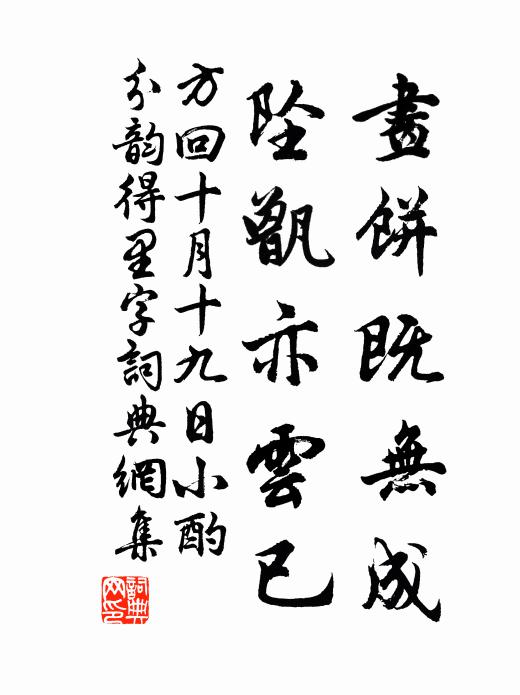 畫餅既無成
墜甑亦雲已
方回十月十九日小酌
分韵得里字詞典網集
詞典网印